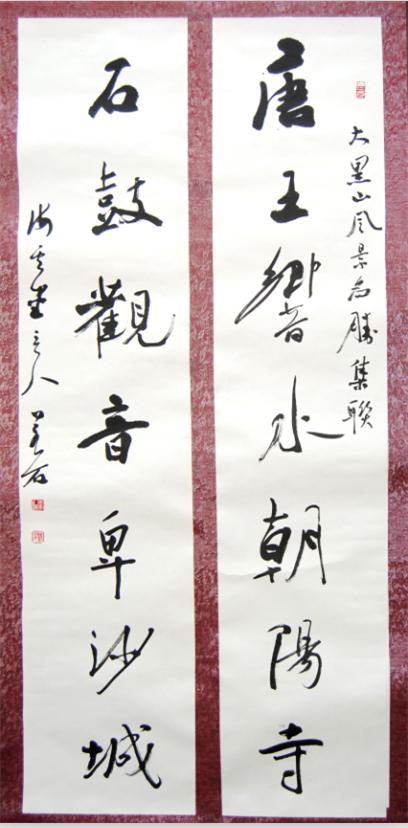 大黑山風景名勝集聯
唐王響水朝陽寺
石鼓觀音卑沙城
主人